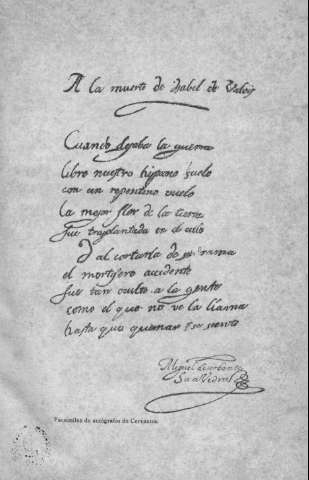 A la muerte de Isabel de Valois
Cuando dejaba la guerra
libre nuestro hispano suelo
con un repentino vuelo
la mejor flor de la tierra
fue trasplantada en el cielo
Y al cortarla de su rama
el mortifero accidente
fue tan oculto a la gente
como el que no ve la llama
hasta que quemar se siente
Miguel de Cerbantes
Saavedra
Facsímiles de autógrafos de Cervantes.